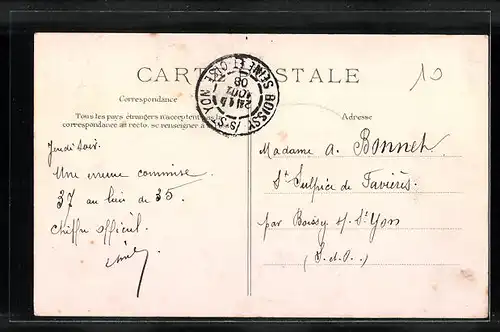 CARTE POSTALE
10
Correspondance
Tous les pays étrangers n'acceptent
correspondance au recto. se renseigner à
Adresse
BOISSY S/S ST YON
SEINE ET OISE
08
Jeudi soir.
Une erreur commise
37 au lieu de 35.
Chiffre officiel.
Madame A. Bonnet
St Sulpice de Favières
par Boissy s/ St Yon
(S.-et-O.)